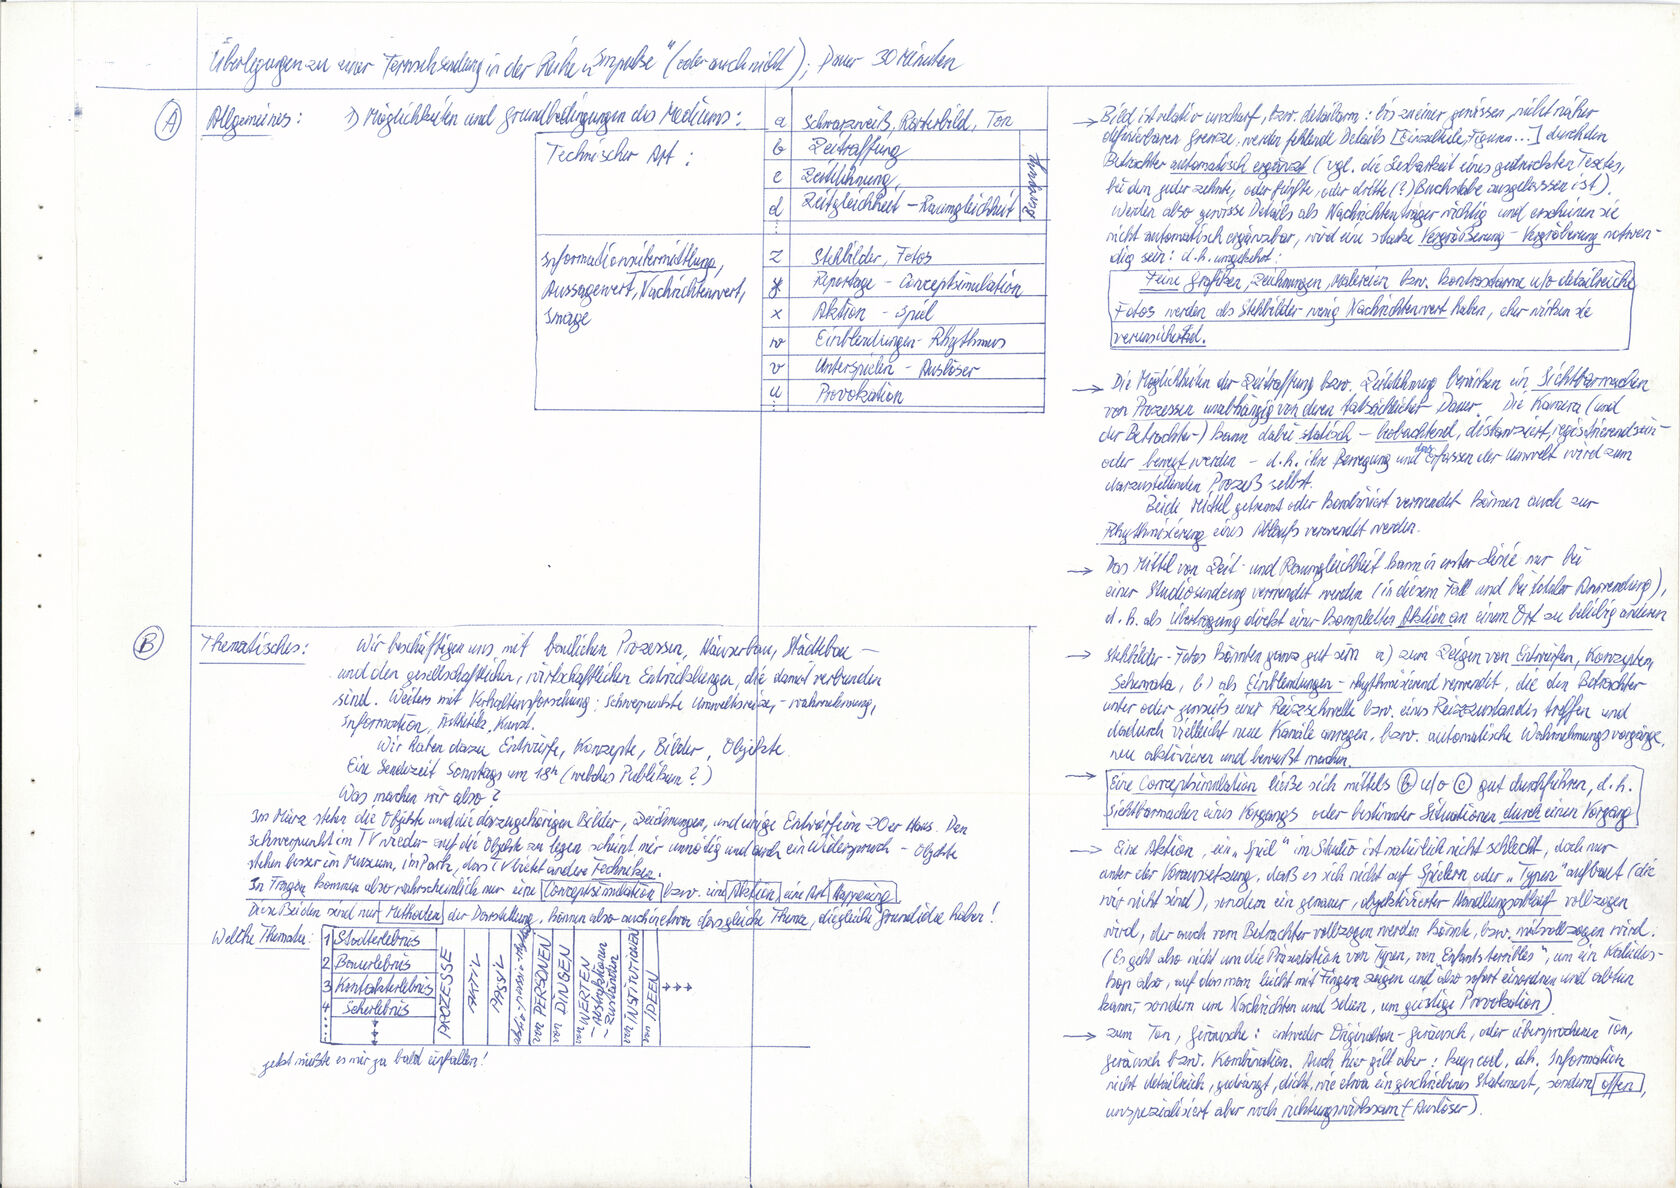 Überlegungen zu einer Fernsehsendung in der Reihe „Impulse" (oder auch nicht); Dauer 30 Minuten
A
Allgemeines:
1) Möglichkeiten und Grundbedingungen des Mediums:
Technischer Art:
a Schwarzweiß, Rasterbild, Ton
b Zeitraffung
c Zeitdehnung
d Zeitgleichheit – Raumgleichheit
Informationsübermittlung,
Aussagewert, Nachrichtenwert,
Image
z Stehbilder, Fotos
y Reportage – Conceptsimulation
x Aktion – Spiel
w Einblendungen – Rhythmus
v Unterspielen – Auslöser
u Provokation
→ Bild ist relativ unscharf, bzw. detailarm: bis zu einer gewissen, nicht näher
definierbaren Grenze werden fehlende Details [Einzelteile, Figuren...] durch den
Betrachter automatisch ergänzt (vgl. die Lesbarkeit eines gedruckten Textes,
bei dem jeder zehnte, oder fünfte, oder dritte (?) Buchstabe ausgelassen ist).
Werden also gewisse Details als Nachrichtenträger wichtig und erscheinen sie
nicht automatisch ergänzbar, wird eine starke Vergrößerung – Vergröberung notwen-
dig sein: d.h. umgekehrt:
Feine Grafiken, Zeichnungen, Malereien bzw. kontrastarme u/o detailreiche
Fotos werden als Stehbilder wenig Nachrichtenwert haben, eher wirken sie
verunsichernd.
→ Die Möglichkeiten der Zeitraffung bzw. Zeitdehnung bewirken ein Sichtbarmachen
von Prozessen unabhängig von deren tatsächlicher Dauer. Die Kamera (und
der Betrachter) kann dabei statisch – beobachtend, distanziert, registrierend sein –
oder bewegt werden – d.h. ihre Bewegung und das Erfassen der Umwelt wird zum
darzustellenden Prozeß selbst.
Beide Mittel getrennt oder kombiniert verwendet können auch zur
Rhythmisierung eines Ablaufs verwendet werden.
→ Das Mittel von Zeit- und Raumgleichheit kann in erster Linie nur bei
einer Studiosendung verwendet werden (in diesem Fall und bei totaler Anwendung),
d.h. als Übertragung direkt einer kompletten Aktion an einem Ort zu beliebig anderen
→ Stehbilder – Fotos könnten ganz gut sein a) zum Zeigen von Entwürfen, Konzepten,
Schemata, b) als Einblendungen – rhythmisierend verwendet, die den Betrachter
unter oder jenseits einer Reizschwelle bzw. eines Reizzustandes treffen und
dadurch vielleicht neue Kanäle anregen, bzw. automatische Wahrnehmungsvorgänge,
neu aktivieren und bewußt machen.
→ Eine Conceptsimulation ließe sich mittels b u/o c gut durchführen, d.h.
Sichtbarmachen eines Vorgangs oder bestimmter Situationen durch einen Vorgang
→ Eine Aktion, ein „Spiel" im Studio ist natürlich nicht schlecht, doch nur
unter der Voraussetzung, daß es sich nicht auf Spielern oder „Typen" aufbaut (die
wir nicht sind), sondern ein genauer, objektivierter Handlungsablauf vollzogen
wird, der auch vom Betrachter vollzogen werden könnte, bzw. mitvollzogen wird.
(Es geht also nicht um die Präsentation von Typen, von „Enfants terribles", um ein Kaleidos-
kop also, auf das man leicht mit Fingern zeigen und also sofort einordnen und abtun
kann – sondern um Nachrichten und seien, um geistige Provokation)
→ zum Ton, Geräusche: entweder Originalton-Geräusch, oder übersprochener Ton,
Geräusch bzw. Kombination. Auch hier gilt aber: keep cool, d.h. Information
nicht detailreich, gedrängt, dicht, wie etwa ein geschriebenes Statement, sondern offen,
unspezialisiert aber noch richtungswirksam (Auslöser).
B
Thematisches:
Wir beschäftigen uns mit baulichen Prozessen, Häuserbau, Städtebau –
und den gesellschaftlichen, wirtschaftlichen Entwicklungen, die damit verbunden
sind. Weiters mit Verhaltensforschung: Schwerpunkte Umweltreize, -wahrnehmung,
Information, Ästhetik, Kunst.
Wir haben dazu Entwürfe, Konzepte, Bilder, Objekte.
Eine Sendezeit Sonntags um 18h (welches Publikum?)
Was machen wir also?
Im März stehen die Objekte und die dazugehörigen Bilder, Zeichnungen, und einige Entwürfe im 20er Haus. Den
Schwerpunkt im TV wieder auf die Objekte zu legen scheint mir unnötig und auch ein Widerspruch – Objekte
stehen besser im Museum, im Park, das TV bietet andere Techniken.
In Fragen kommen also wahrscheinlich nur eine Conceptsimulation bzw. eine Aktion, eine Art Happening
Diese Beiden sind nur Methoden der Darstellung, können also auch in etwa das gleiche Thema, die gleiche Grundidee haben!
Welche Themata:
1 Stadterlebnis
2 Bauerlebnis
3 Kontakterlebnis
4 Seherlebnis
PROZESSE
AKTIV
PASSIV
von PERSONEN
von DINGEN
von WERTEN
– Abhängigkeiten
– Zuständen
von INSTITUTIONEN
von IDEEN
jetzt müßte es mir ja bald einfallen!